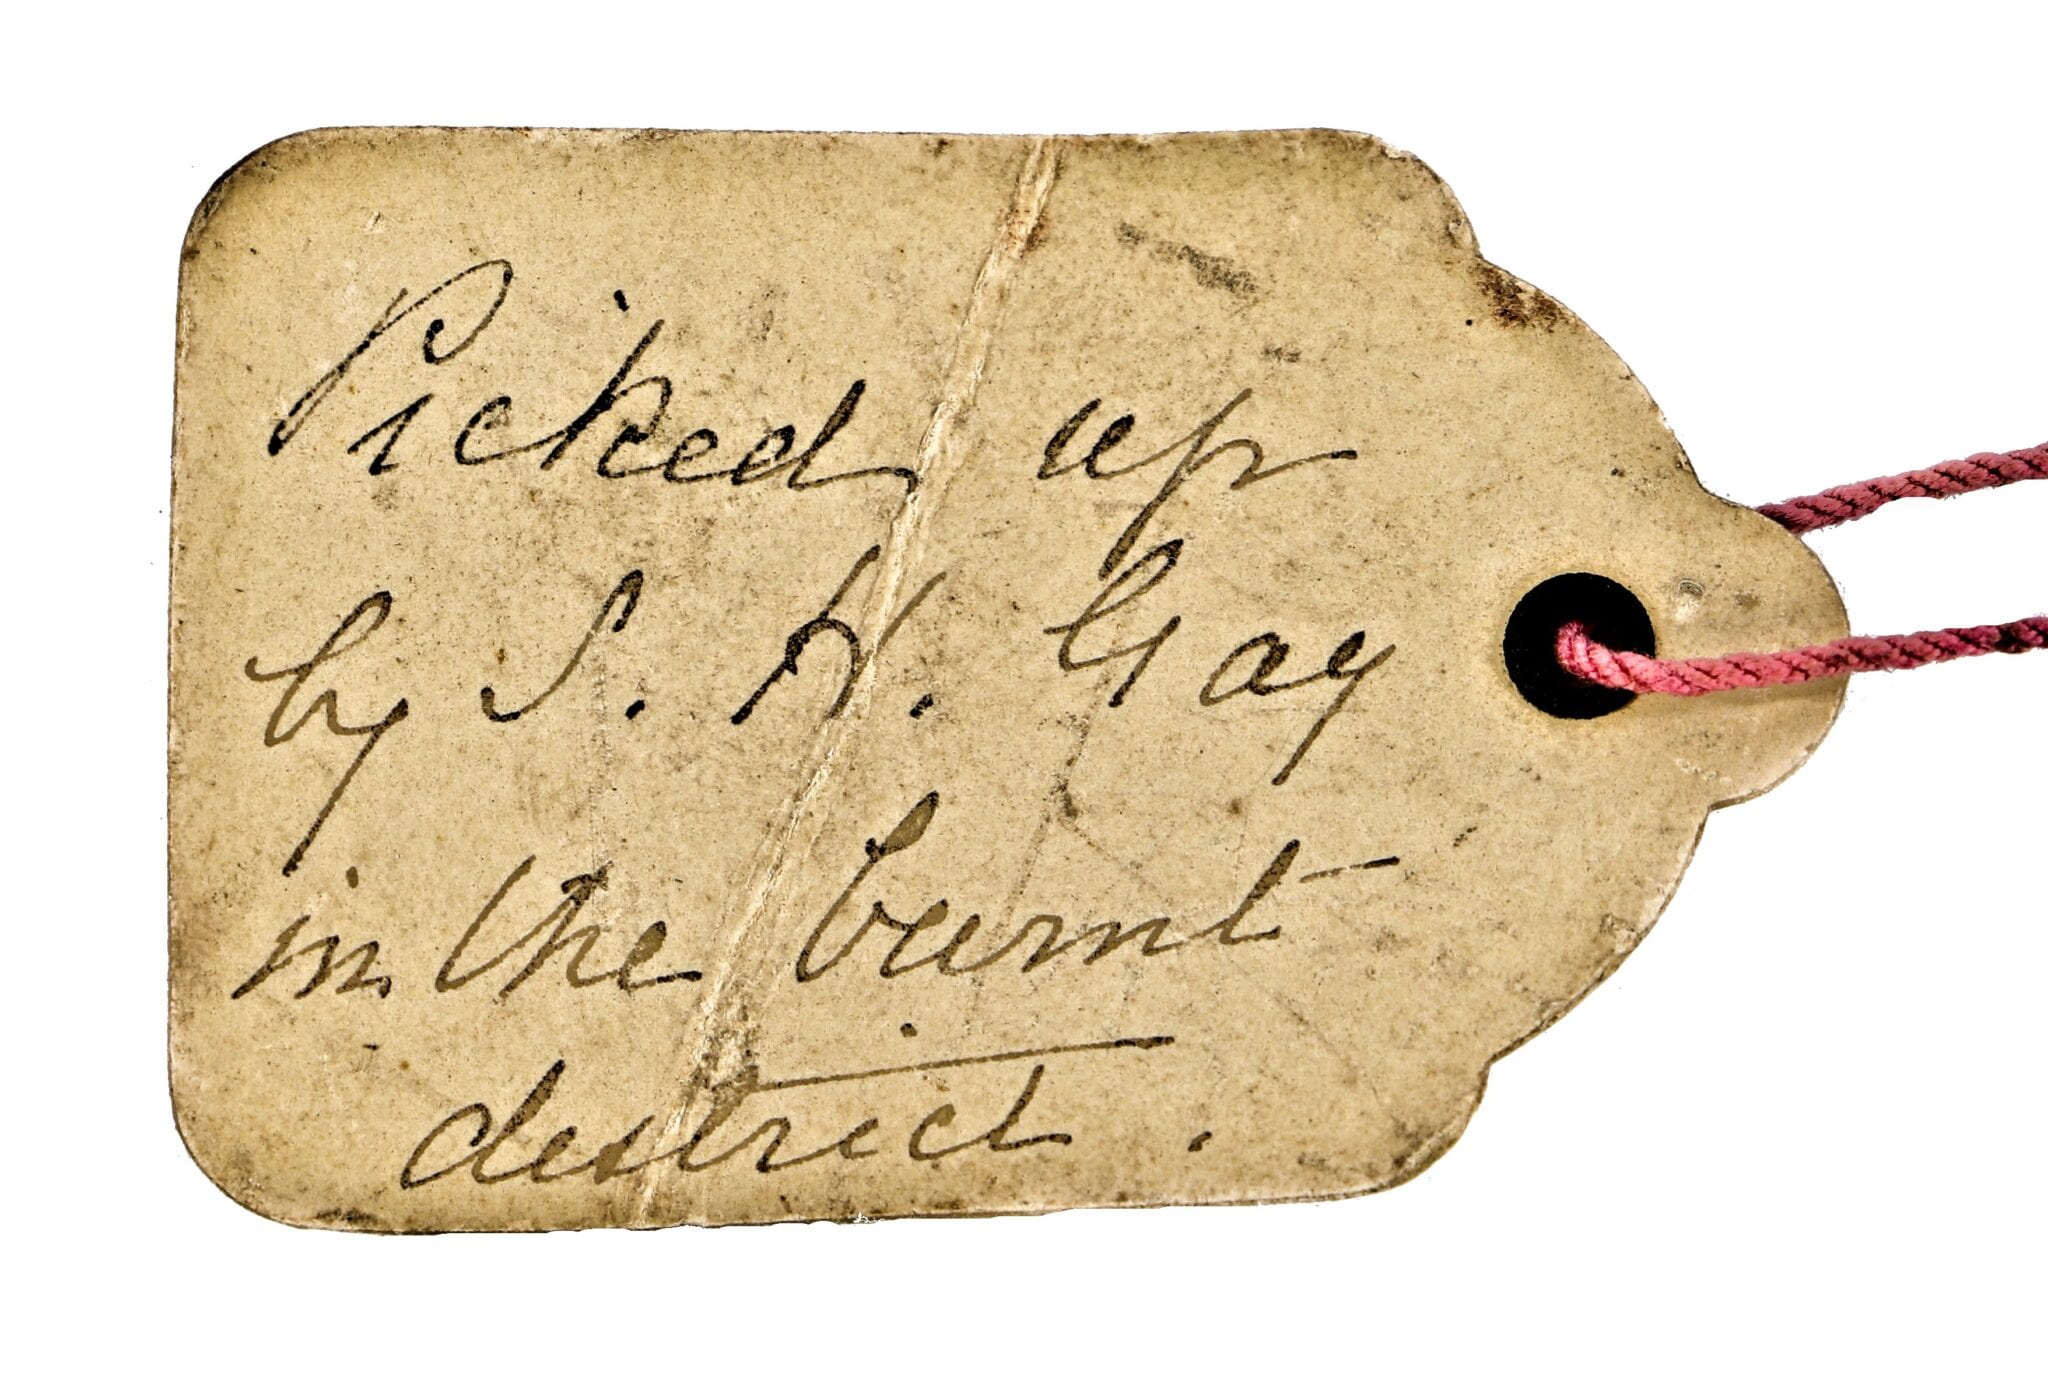 Picked up
by S. H. Gay
in the burnt
district.